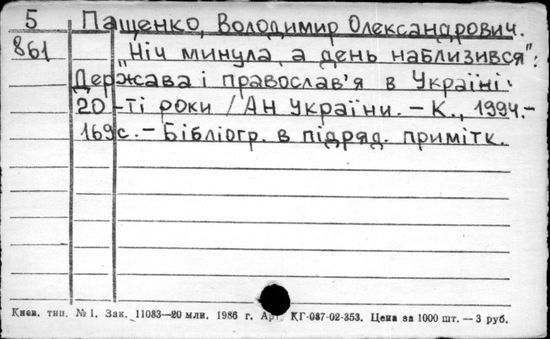 5 Пащенко, Володимир Олександрович.
861 „Ніч минула, а день наблизився":
Держава і православ'я в Україні:
20-ті роки / АН України. – К., 1994. –
169с. – Бібліогр. в підряд. примітк.
Киев. тип. № 1. Зак. 11083—20 млн. 1986 г. КГ-087-02-353. Цена за 1000 шт. — 3 руб.